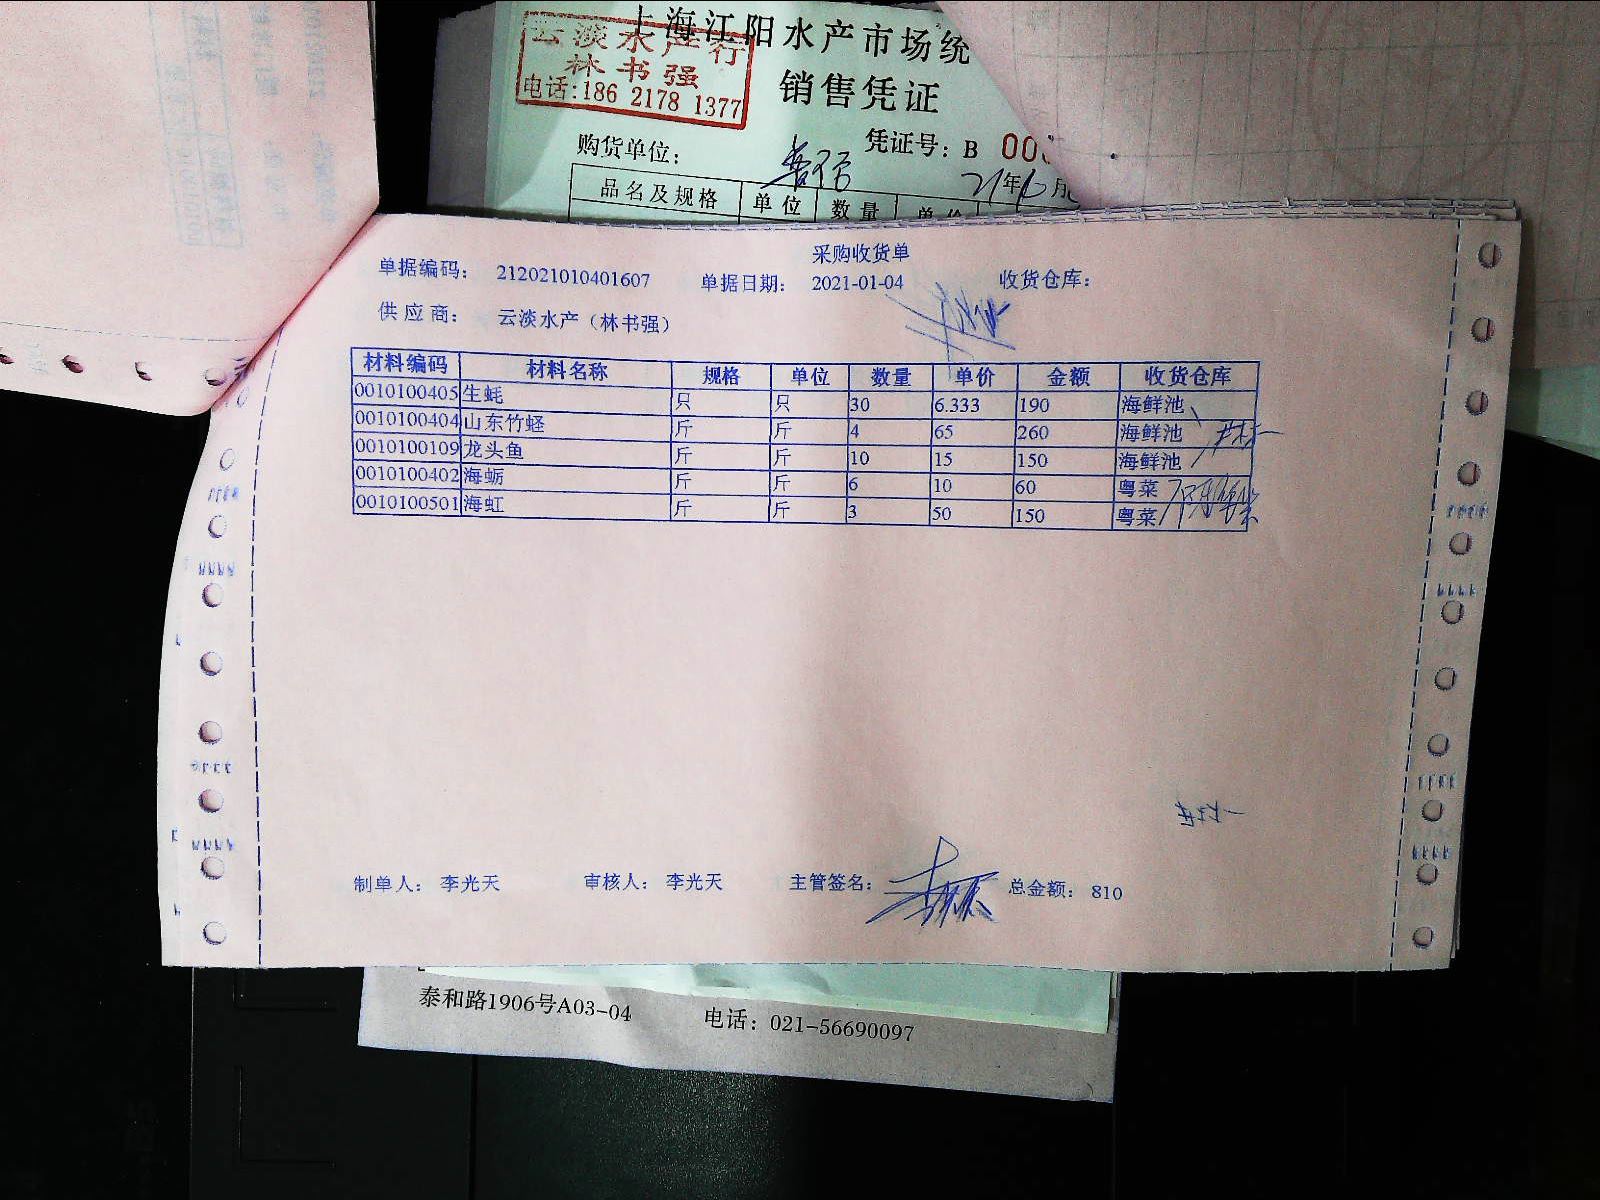 上海江阳水产市场统
云淡水产行
林书强
电话:186 2178 1377
销售凭证
购货单位:
凭证号: B 00
21年 月
品名及规格 单位 数量 单价
采购收货单
单据编码: 212021010401607 单据日期: 2021-01-04 收货仓库:
供应商: 云淡水产（林书强）
材料编码 材料名称 规格 单位 数量 单价 金额 收货仓库
0010100405 生蚝 只 只 30 6.333 190 海鲜池
0010100404 山东竹蛏 斤 斤 4 65 260 海鲜池
0010100109 龙头鱼 斤 斤 10 15 150 海鲜池
0010100402 海蛎 斤 斤 6 10 60 粤菜
0010100501 海虹 斤 斤 3 50 150 粤菜
制单人: 李光天 审核人: 李光天 主管签名: 总金额: 810
泰和路1906号A03-04 电话: 021-56690097